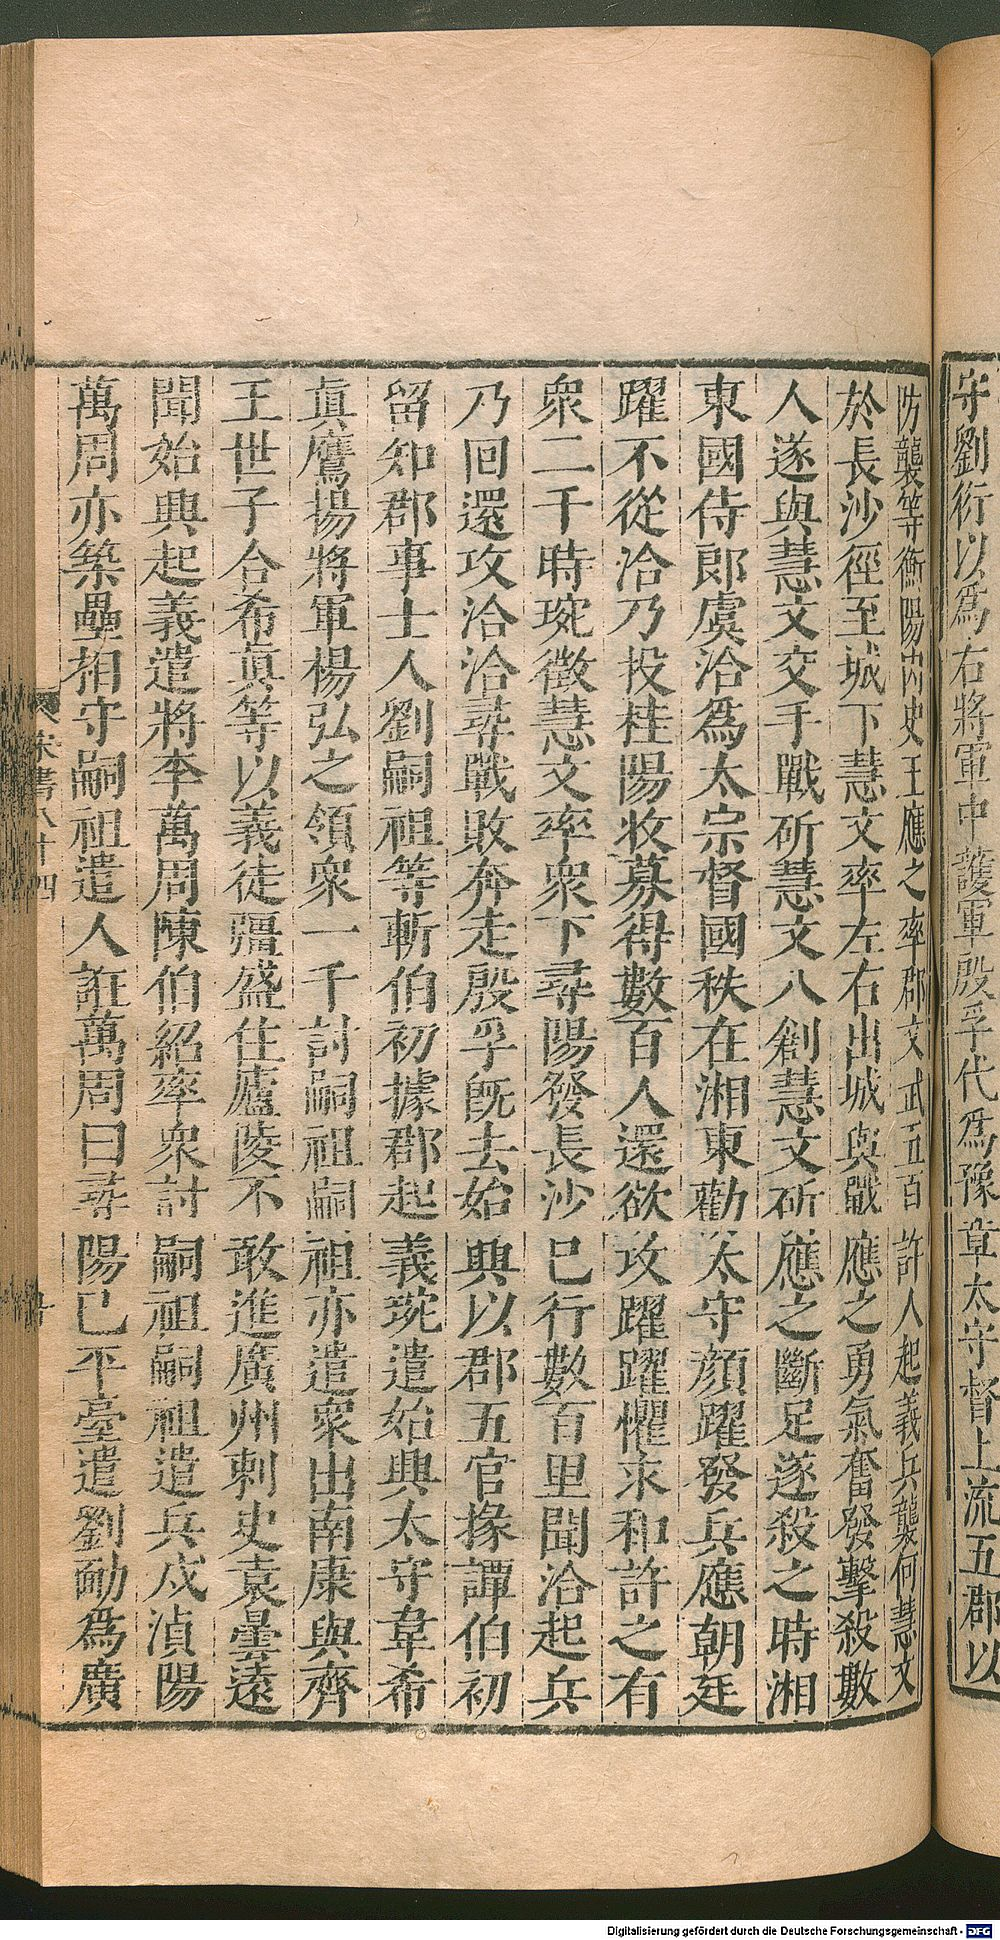 守劉衍以爲右將軍中護軍殷孚代爲豫章太守督上流五郡以
防襲等衡陽內史王應之率郡文武五百許人起義兵襲何慧文
於長沙徑至城下慧文率左右出城與戰應之勇氣奮發擊殺數
人遂與慧文交手戰斫慧文八創慧文斫應之斷足遂殺之時湘
東國侍郎虞洽爲太宗督國秩在湘東勸太守顏躍發兵應朝廷
躍不從洽乃投桂陽收募得數百人還欲攻躍躍懼求和許之有
衆二千時琬徵慧文率衆下尋陽發長沙已行數百里聞洽起兵
乃回還攻洽洽尋戰敗奔走殷孚旣去始興以郡五官掾譚伯初
留知郡事士人劉嗣祖等斬伯初據郡起義琬遣始興太守韋希
真鷹揚將軍楊弘之領衆一千討嗣祖嗣祖亦遣衆出南康與齊
王世子合希真等以義徒疆盛住廬陵不敢進廣州刺史袁曇遠
聞始興起義遣將李萬周陳伯紹率衆討嗣祖嗣祖遣兵戍湞陽
萬周亦築壘相守嗣祖遣人誑萬周曰尋陽已平臺遣劉勔爲廣
宋書八十四
Digitalisierung gefördert durch die Deutsche Forschungsgemeinschaft - DFG